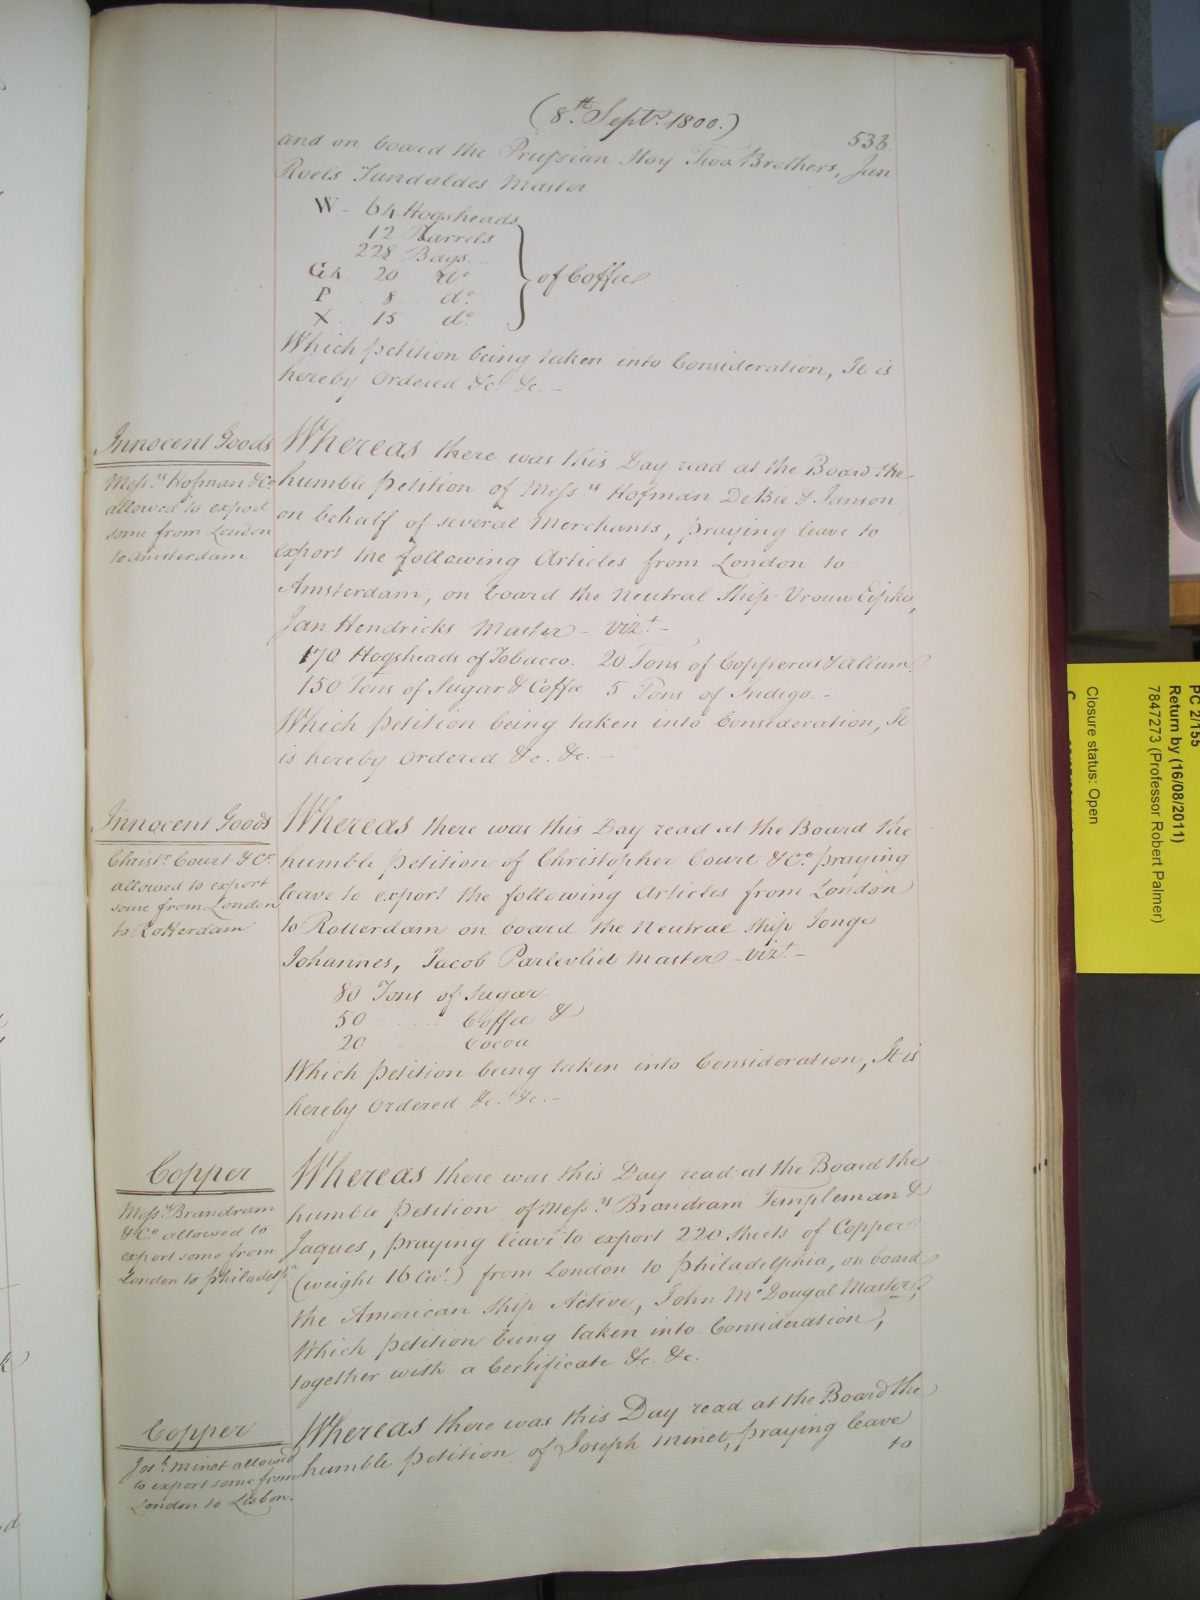 (8th Septr. 1800.)
533
and on board the Prussian Hoy Two Brothers, Jan
Roels Tundaldes Master
W - 64 Hogsheads
12 Barrels
228 Bags.
20 do
P 8 do.
X 15 do.
of Coffee
Which petition being taken into Consideration, It is
hereby Ordered &c. &c. -
Innocent Goods
Messrs. Hofman & Co
allowed to export
some from London
to Amsterdam
Whereas there was this Day read at the Board the
humble Petition of Messrs Hofman DeBie & Janson
on behalf of several Merchants, praying leave to
export the following Articles from London to
Amsterdam, on board the Neutral Ship Vrouw Eipke,
Jan Hendricks Master - vizt. -
170 Hogsheads of Tobacco. 20 Tons of Copperas & Allum
150 Tons of Sugar & Coffee 5 Tons of Indigo. -
Which petition being taken into Consideration, It
is hereby Ordered &c. &c. -
Innocent Goods
Christr. Court & Co.
allowed to export
some from London
to Rotterdam
Whereas there was this Day read at the Board the
humble petition of Christopher Court & Co. praying
leave to export the following Articles from London
to Rotterdam on board the Neutral Ship Jonge
Johannes, Jacob Parlevliet Master - vizt. -
80 Tons of Sugar.
50 Coffee &
20 Cocoa
Which petition being taken into Consideration, It is
hereby Ordered &c. &c. -
Copper
Messrs. Brandram
& Co. allowed to
export some from
London to Philadelp
Whereas there was this Day read at the Board the
humble Petition of Messrs Brandram Templeman &
Jaques, praying leave to export 220 Sheets of Copper
(weight 16 Cwt.) from London to Philadelphia, on board
the American Ship Active, John McDougal Master,
Which petition being taken into Consideration,
together with a Certificate &c. &c.
Copper
Josh. Minet allowed
to export some from
London to Lisbon.
Whereas there was this Day read at the Board the
humble petition of Joseph Minet, praying leave
to
PC 2/155
Return by (16/08/2011)
7847273 (Professor Robert Palmer)
Closure status: Open